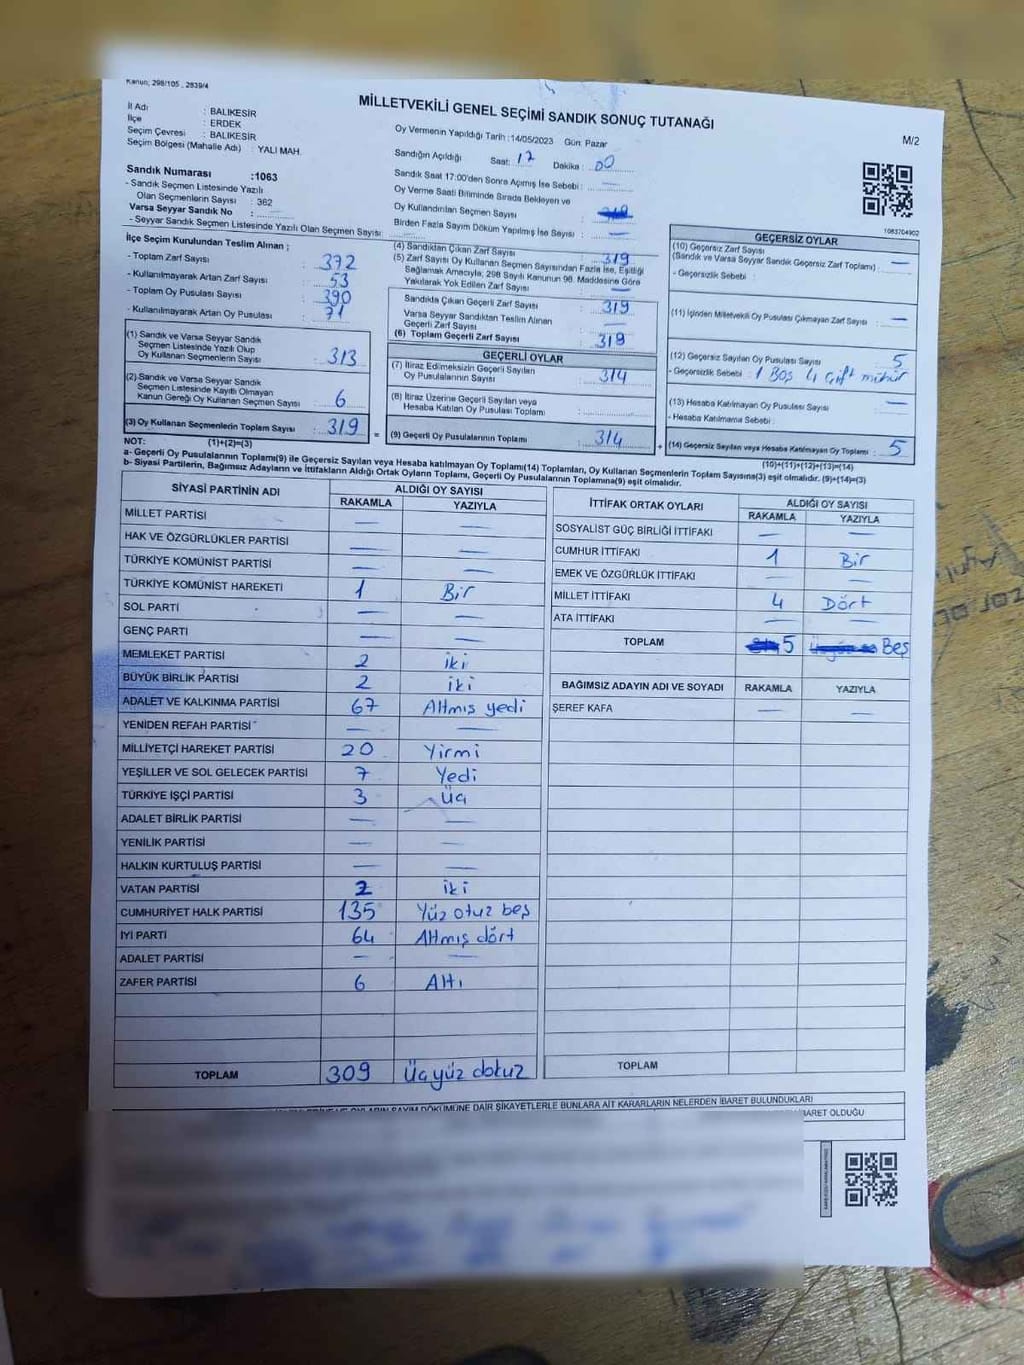 Kanun, 298/105 , 2839/4
MİLLETVEKİLİ GENEL SEÇİMİ SANDIK SONUÇ TUTANAĞI
M/2
İl Adı : BALIKESİR
İlçe : ERDEK
Seçim Çevresi : BALIKESİR
Seçim Bölgesi (Mahalle Adı) : YALI MAH.
Sandık Numarası :1063
- Sandık Seçmen Listesinde Yazılı
Olan Seçmenlerin Sayısı : 362
Varsa Seyyar Sandık No :
- Seyyar Sandık Seçmen Listesinde Yazılı Olan Seçmen Sayısı:
Oy Vermenin Yapıldığı Tarih :14/05/2023 Gün: Pazar
Sandığın Açıldığı Saat: 17 Dakika : 00
Sandık Saat 17:00'den Sonra Açılmış İse Sebebi : —
Oy Verme Saati Bitiminde Sırada Bekleyen ve
Oy Kullandırılan Seçmen Sayısı :
Birden Fazla Sayım Döküm Yapılmış İse Sayısı : —
1063704902
İlçe Seçim Kurulundan Teslim Alınan ;
- Toplam Zarf Sayısı : 372
- Kullanılmayarak Artan Zarf Sayısı : 53
- Toplam Oy Pusulası Sayısı : 390
- Kullanılmayarak Artan Oy Pusulası : 71
(1) Sandık ve Varsa Seyyar Sandık
Seçmen Listesinde Yazılı Olup
Oy Kullanan Seçmenlerin Sayısı : 313
(2) Sandık ve Varsa Seyyar Sandık
Seçmen Listesinde Kayıtlı Olmayan
Kanun Gereği Oy Kullanan Seçmen Sayısı : 6
(3) Oy Kullanan Seçmenlerin Toplam Sayısı : 319
(4) Sandıktan Çıkan Zarf Sayısı : 319
(5) Zarf Sayısı Oy Kullanan Seçmen Sayısından Fazla İse, Eşitliği
Sağlamak Amacıyla; 298 Sayılı Kanunun 98. Maddesine Göre
Yakılarak Yok Edilen Zarf Sayısı : —
Sandıkta Çıkan Geçerli Zarf Sayısı : 319
Varsa Seyyar Sandıktan Teslim Alınan
Geçerli Zarf Sayısı : —
(6) Toplam Geçerli Zarf Sayısı : 319
GEÇERLİ OYLAR
(7) İtiraz Edilmeksizin Geçerli Sayılan
Oy Pusulalarının Sayısı : 314
(8) İtiraz Üzerine Geçerli Sayılan veya
Hesaba Katılan Oy Pusulası Toplamı :
= (9) Geçerli Oy Pusulalarının Toplamı : 314
GEÇERSİZ OYLAR
(10) Geçersiz Zarf Sayısı
(Sandık ve Varsa Seyyar Sandık Geçersiz Zarf Toplamı) : —
- Geçersizlik Sebebi :
(11) İçinden Milletvekili Oy Pusulası Çıkmayan Zarf Sayısı : —
(12) Geçersiz Sayılan Oy Pusulası Sayısı : 5
- Geçersizlik Sebebi : 1 Boş 4 Çift mühür
(13) Hesaba Katılmayan Oy Pusulası Sayısı : —
- Hesaba Katılmama Sebebi :
+ (14) Geçersiz Sayılan veya Hesaba Katılmayan Oy Toplamı : 5
NOT: (1)+(2)=(3)
(10)+(11)+(12)+(13)=(14)
a- Geçerli Oy Pusulalarının Toplamı(9) ile Geçersiz Sayılan veya Hesaba katılmayan Oy Toplamı(14) Toplamları, Oy Kullanan Seçmenlerin Toplam Sayısına(3) eşit olmalıdır. (9)+(14)=(3)
b- Siyasi Partilerin, Bağımsız Adayların ve İttifakların Aldığı Ortak Oyların Toplamı, Geçerli Oy Pusulalarının Toplamına(9) eşit olmalıdır.
SİYASİ PARTİNİN ADI ALDIĞI OY SAYISI
RAKAMLA YAZIYLA
MİLLET PARTİSİ — —
HAK VE ÖZGÜRLÜKLER PARTİSİ — —
TÜRKİYE KOMÜNİST PARTİSİ — —
TÜRKİYE KOMÜNİST HAREKETİ 1 Bir
SOL PARTİ — —
GENÇ PARTİ — —
MEMLEKET PARTİSİ 2 iki
BÜYÜK BİRLİK PARTİSİ 2 iki
ADALET VE KALKINMA PARTİSİ 67 Altmış yedi
YENİDEN REFAH PARTİSİ — —
MİLLİYETÇİ HAREKET PARTİSİ 20 Yirmi
YEŞİLLER VE SOL GELECEK PARTİSİ 7 Yedi
TÜRKİYE İŞÇİ PARTİSİ 3 Üç
ADALET BİRLİK PARTİSİ — —
YENİLİK PARTİSİ — —
HALKIN KURTULUŞ PARTİSİ — —
VATAN PARTİSİ 2 iki
CUMHURİYET HALK PARTİSİ 135 Yüz otuz beş
İYİ PARTİ 64 Altmış dört
ADALET PARTİSİ — —
ZAFER PARTİSİ 6 Altı
TOPLAM 309 Üçyüz dokuz
İTTİFAK ORTAK OYLARI ALDIĞI OY SAYISI
RAKAMLA YAZIYLA
SOSYALİST GÜÇ BİRLİĞİ İTTİFAKI — —
CUMHUR İTTİFAKI 1 Bir
EMEK VE ÖZGÜRLÜK İTTİFAKI — —
MİLLET İTTİFAKI 4 Dört
ATA İTTİFAKI — —
TOPLAM 5 Beş
BAĞIMSIZ ADAYIN ADI VE SOYADI RAKAMLA YAZIYLA
ŞEREF KAFA — —
TOPLAM
SAYIM DÖKÜMÜNE DAİR ŞİKAYETLERLE BUNLARA AİT KARARLARIN NELERDEN İBARET BULUNDUKLARI
İBARET OLDUĞU